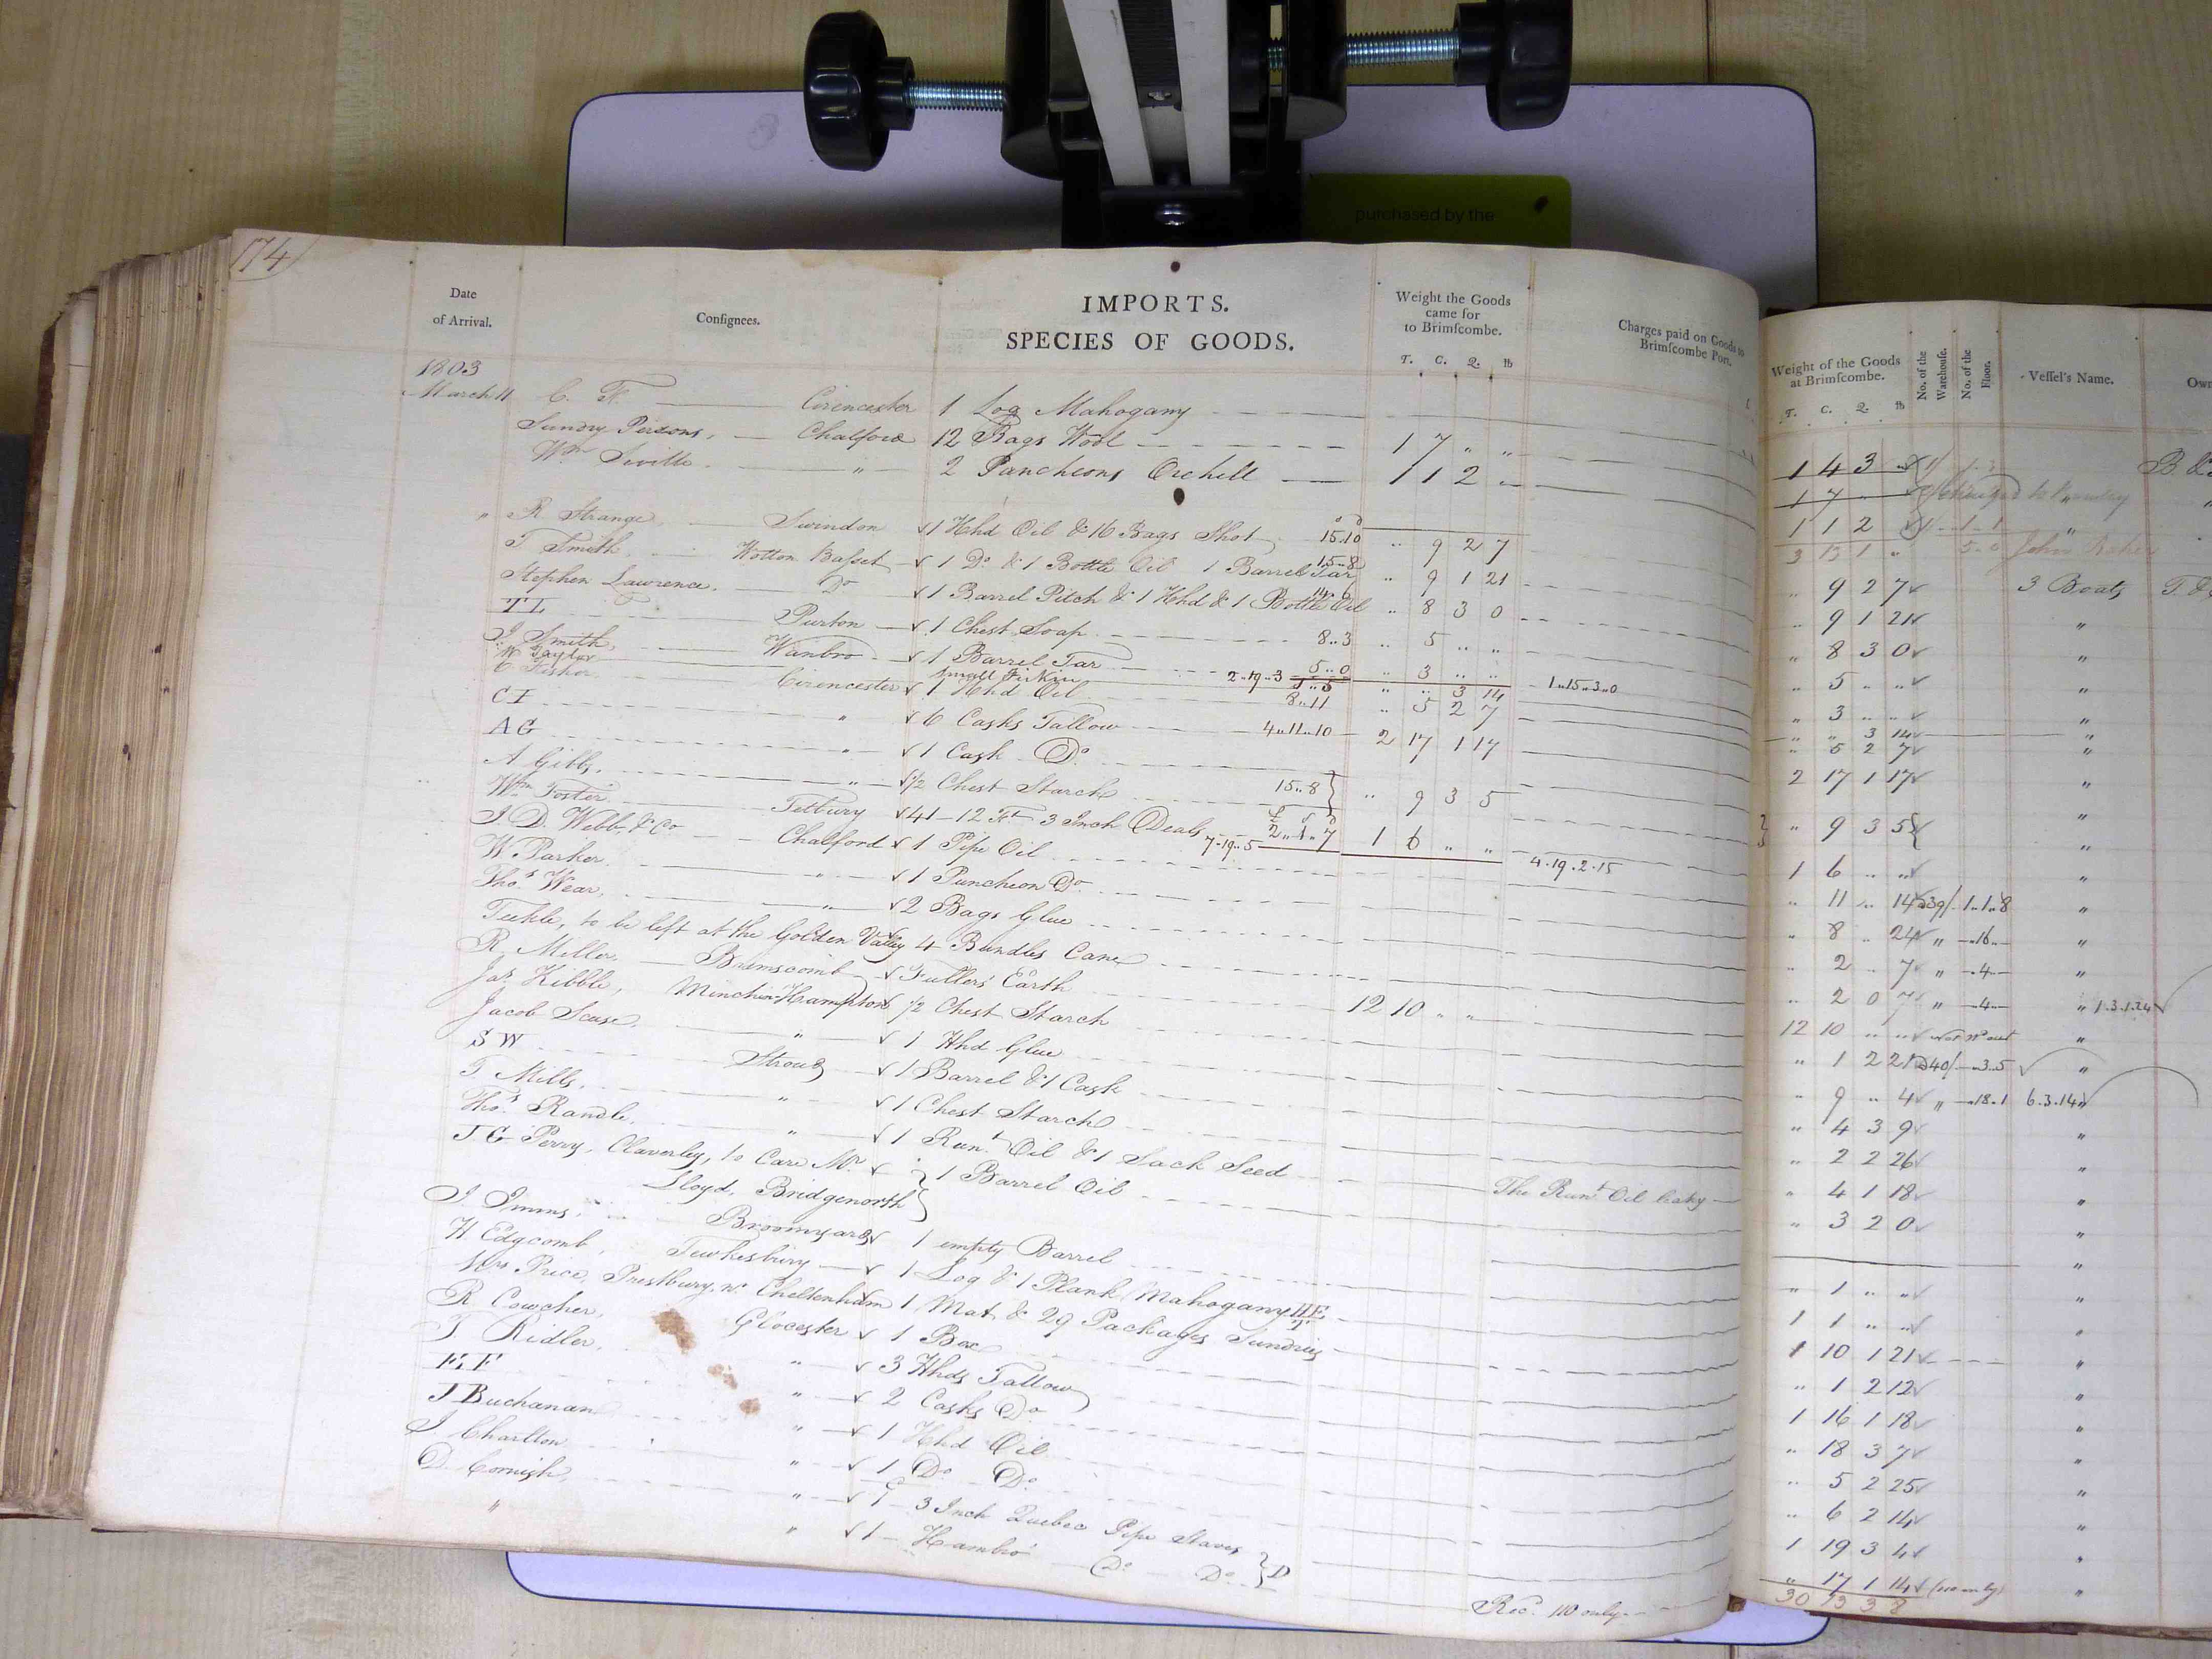 purchased by the
174
Date of Arrival. Consignees. IMPORTS. SPECIES OF GOODS. Weight the Goods came for to Brimscombe. T. C. Q. lb Charges paid on Goods to Brimscombe Port. Weight of the Goods at Brimscombe. T. C. Q. lb No. of the Warehouse. No. of the Floor. Vessel's Name. Own
1803
March 11 C. F. Cirencester 1 Log Mahogany 1 4 3 „ B. &
Sundry Persons, Chalford 12 Bags Wool 1 7 „ „ 1 7
Wm Siville „ 2 Puncheons Orchill 1 1 2 „ 1 1 2 „
3 13 1 „
„ R Strange, Swindon 1 Hhd Oil & 16 Bags Shot 15.10 „ 9 2 7 „ 9 2 7 3 Boats T. &
T Smith, Wotton Basset 1 Do & 1 Bottle Oil 1 Barrel Tar 15..8 „ 9 1 21 „ 9 1 21 „
Stephen Lawrence, Do 1 Barrel Pitch & 1 Hhd & 1 Bottle Oil „ 8 3 0 „ 8 3 0 „
TL Purton 1 Chest Soap 8..3 „ 5 „ „ „ 5 „ „ „
J. Smith, Wanbro 1 Barrel Tar 5..0 „ 3 „ „ „ 3 „ „ „
W Taylor small Firkin 2..19..3 „ „ 3 14 1..15..3..0 „ „ 3 14 „
C Fisher Cirencester 1 Hhd Oil 8..11 „ 5 2 7 „ 5 2 7 „
CI „ 6 Casks Tallow 4..11..10 2 17 1 17 2 17 1 17 „
AG „ 1 Cask Do
A Gibbs, „ 1/2 Chest Starch 15..8 „ 9 3 5 „ 9 3 5 „
Wm Foster Tetbury 41 - 12 Ft 3 Inch Deals £ s d 2..1..7 1 6 „ „ 1 6 „ „ „
J D Webb, & Co Chalford 1 Pipe Oil 7..19..5 4.19.2.15 „ 11 „ 14 39/ 1..1..8 „
W. Parker „ 1 Puncheon Do „ 8 „ 24 „ 16 „
Thos Wear, „ 2 Bags Glue „ 2 „ 7 „ 4 „
Teekle, to be left at the Golden Valley 4 Bundles Cane „ 2 0 7 „ 4 „ 1.3.1.24
R. Miller, Brimscomb Fullers Earth 12 10 „ „ 12 10 „ „ „
Jas Kibble, Minchin Hampton 1/2 Chest Starch „ 1 2 21 40/ 3.5 „
Jacob Scuse, „ 1 Hhd Glue „ 9 „ 4 „ 18.1 6.3.14 „
S W Stroud 1 Barrel & 1 Cask „ 4 3 9 „
T Mills, „ 1 Chest Starch „ 2 2 26 „
Thos Randle, „ 1 Runt Oil & 1 Sack Seed The Runt Oil leaky „ 4 1 18 „
T G Perry, Claverley, to Care Mr 1 Barrel Oil „ 3 2 0 „
Lloyd, Bridgenorth
J Imms, Broomyard 1 empty Barrel „ 1 „ „ „
H Edgcomb, Tewkesbury 1 Log & 1 Plank Mahogany HE 1 1 „ „ „
Mrs Price, Prestbury, nr Cheltenham 1 Mat & 29 Packages Sundries 1 10 1 21 „
R Cowcher, Glocester 1 Box „ 1 2 12 „
T Ridler, „ 3 Hhds Tallow 1 16 1 18 „
EF „ 2 Casks Do „ 18 3 7 „
J Buchanan „ 1 Hhd Oil „ 5 2 25 „
J Charlton „ 1 Do Do „ 6 2 14 „
D Cornish, „ 1 - 3 Inch Quebec Pipe Staves 1 19 3 4 „
„ „ 1 - Hambro Do Do D Recd 110 only „ 17 1 14 „
30 13 3 8